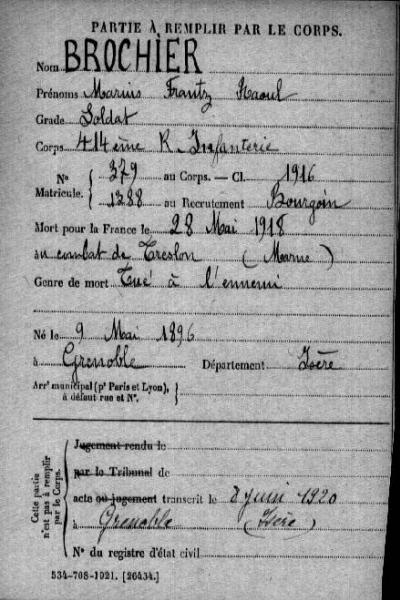 PARTIE À REMPLIR PAR LE CORPS.
Nom BROCHIER
Prénoms Marius Frantz Raoul
Grade Soldat
Corps 414ème R. Infanterie
N° 379 au Corps. — Cl. 1916
Matricule. 1388 au Recrutement Bourgoin
Mort pour la France le 28 Mai 1918
au combat de Treslon (Marne)
Genre de mort Tué à l'ennemi
Né le 9 Mai 1896
à Grenoble Département Isère
Arr^t municipal (p^r Paris et Lyon),
à défaut rue et N°.
Cette partie
n'est pas à remplir
par le Corps.
Jugement rendu le
par le Tribunal de
acte ou jugement transcrit le 8 juin 1920
à Grenoble (Isère)
N° du registre d'état civil
534-708-1921. [26434.]